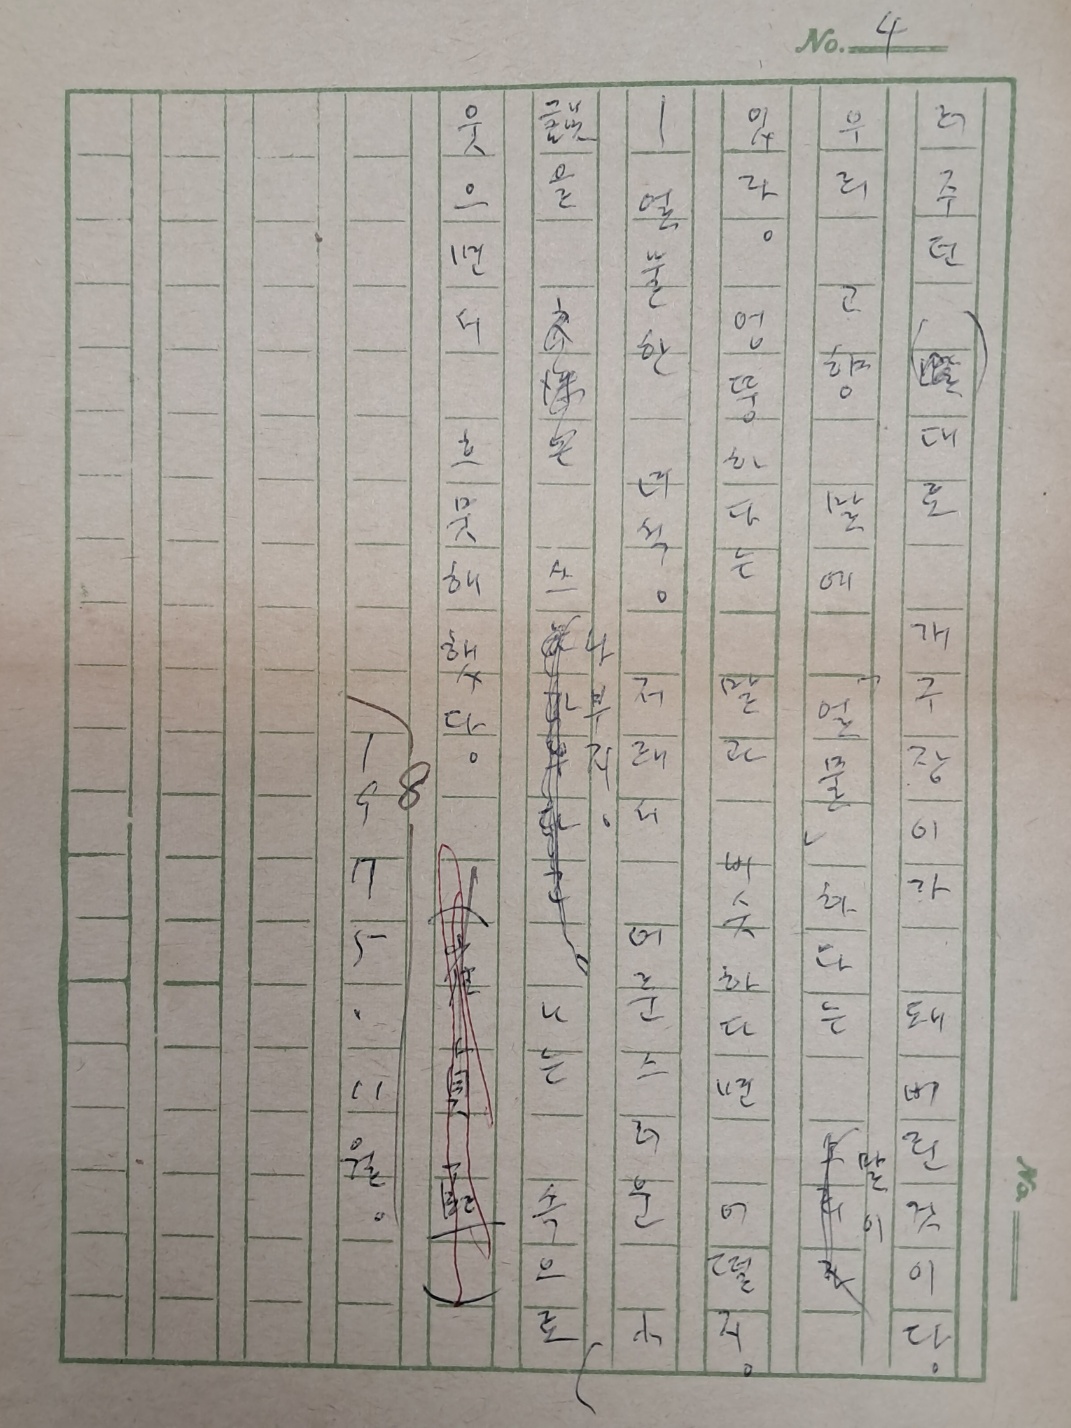 No. 4
러주던 대로 개구장이가 돼 버린 것이다。
우리 고향 말에 「얼물」하다는 말이
있다。 엉뚱하다는 말과 비슷하다면 어떨지。
— 얼물한 녀석。 저래서 어른스러운
을 쓰나부지。 나는 속으로
웃으면서 흐뭇해 했다。
1975.11월。
8
No.